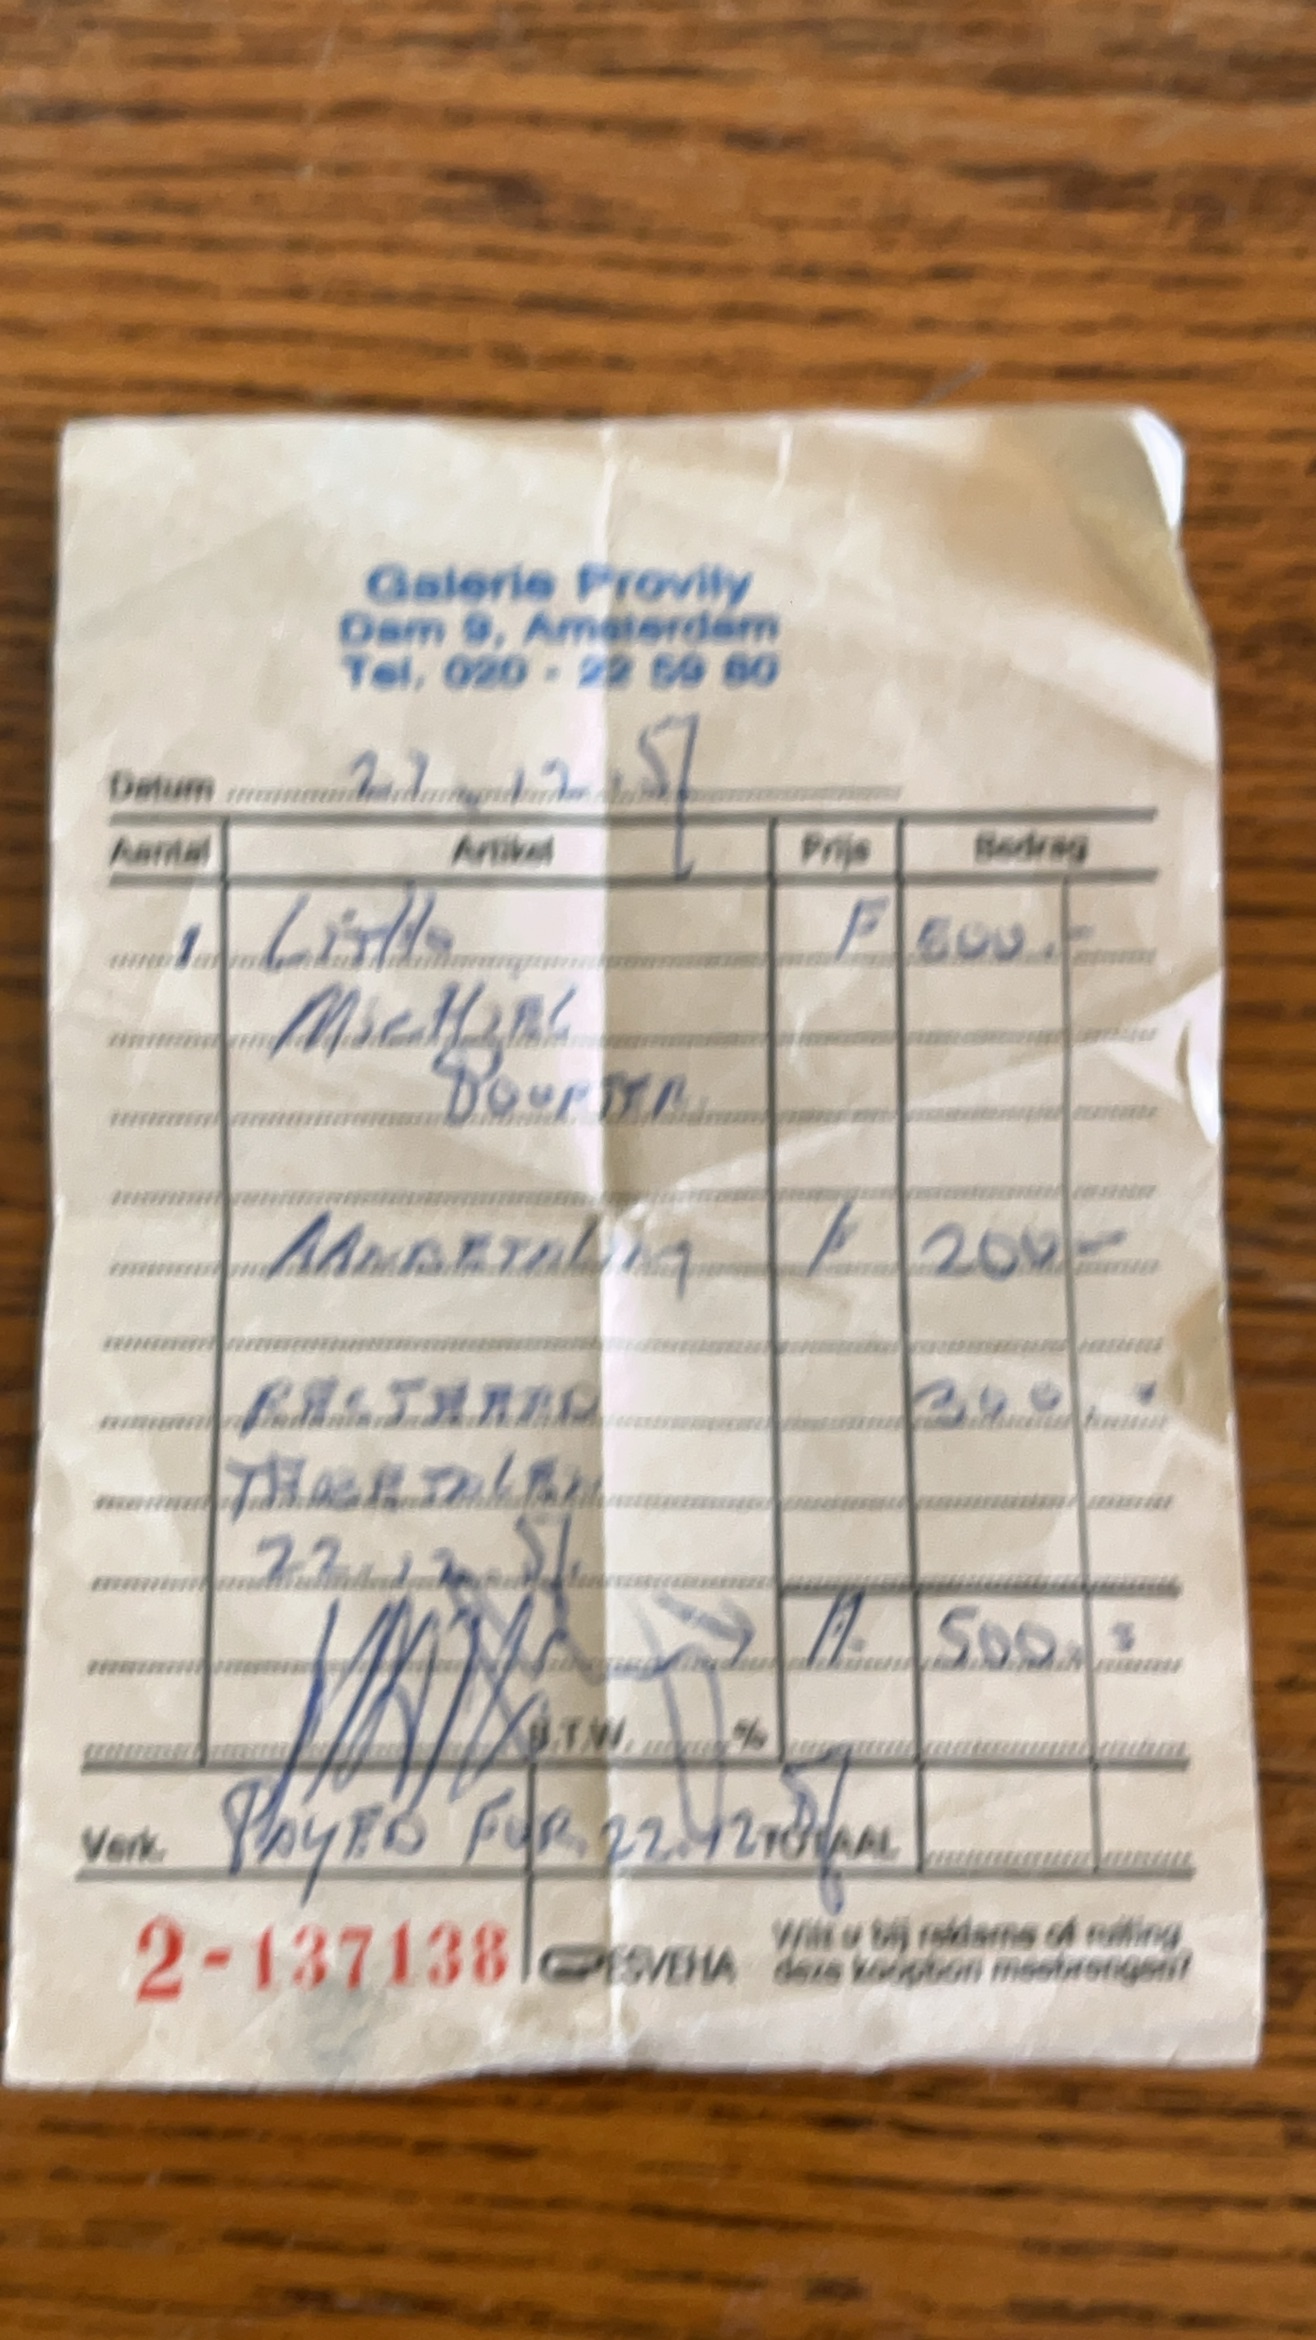 Galerie Provily
Dam 9, Amsterdam
Tel. 020 - 22 59 60
Datum
Aantal Artikel Prijs Bedrag
1 Litho F 500.-
MicHiel
AANBETALING F 200-
RESTEREND 300.-
22.12.
fl. 500.-
B.T.W. %
Verk. PAYED FOR 22.12 TOTAAL
2-137138 ESVEHA Wilt u bij reklame of ruiling
deze kassabon meebrengen?